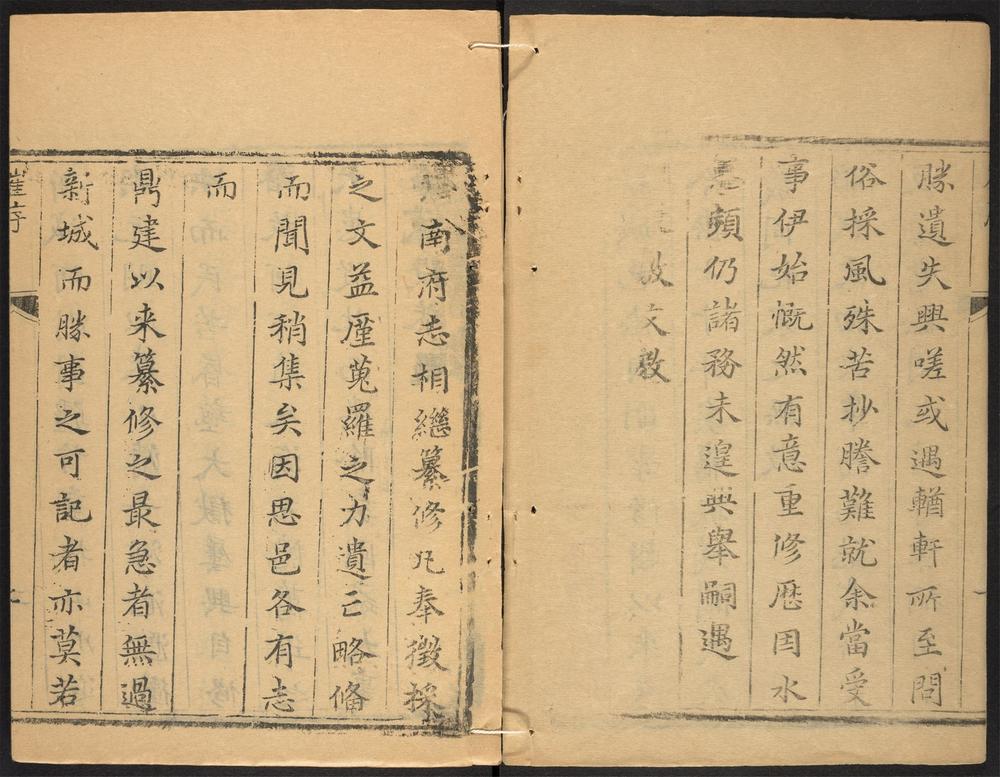 勝遺失興嗟或遇輶軒所至問
俗採風殊苦抄謄難就余當受
事伊始慨然有意重修歷因水
患頻仍諸務未遑興舉嗣遇
文敎
南府志相繼纂修凡奉徵採
之文益廑蒐羅之力遺亡略備
而聞見稍集矣因思邑各有志
而
鼎建以来纂修之最急者無過
新城而勝事之可記者亦莫若
崔序